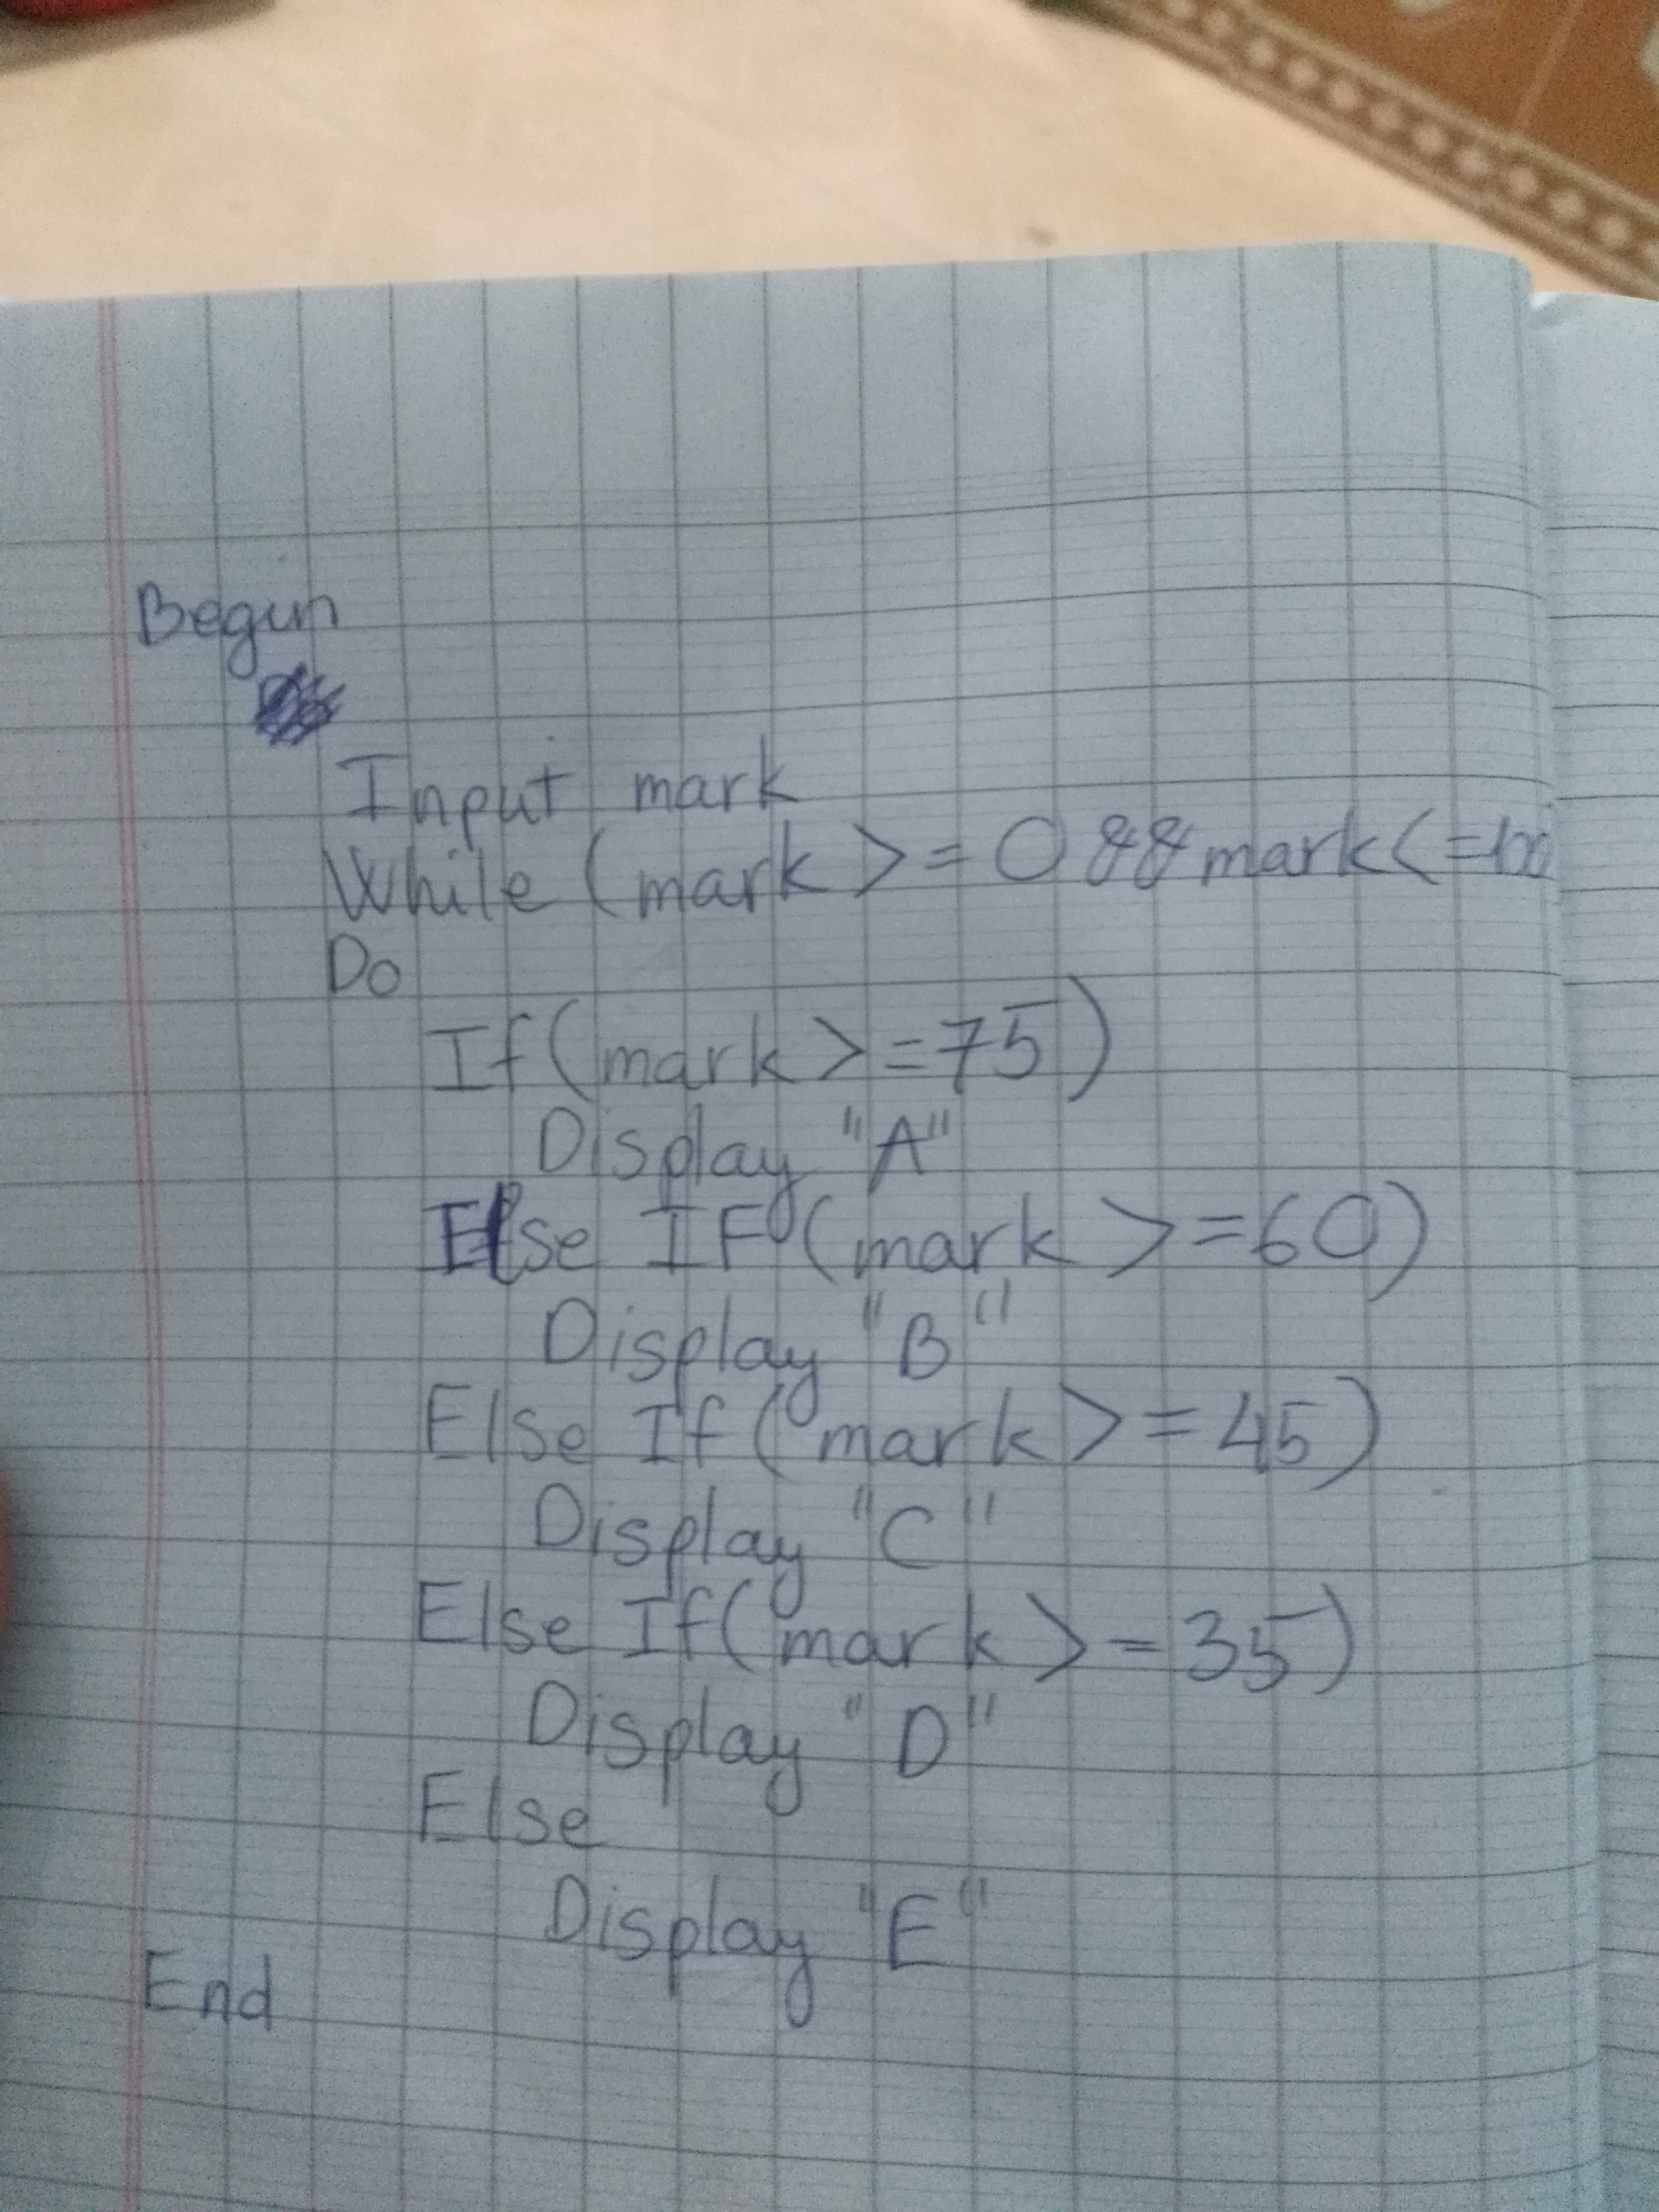 Begin
Input mark
While (mark >= 0 && mark <= 100
Do
If (mark >= 75)
Display "A"
Else IF (mark >= 60)
Display "B"
Else If (mark >= 45)
Display "C"
Else If (mark >= 35)
Display "D"
Else
Display "E"
End